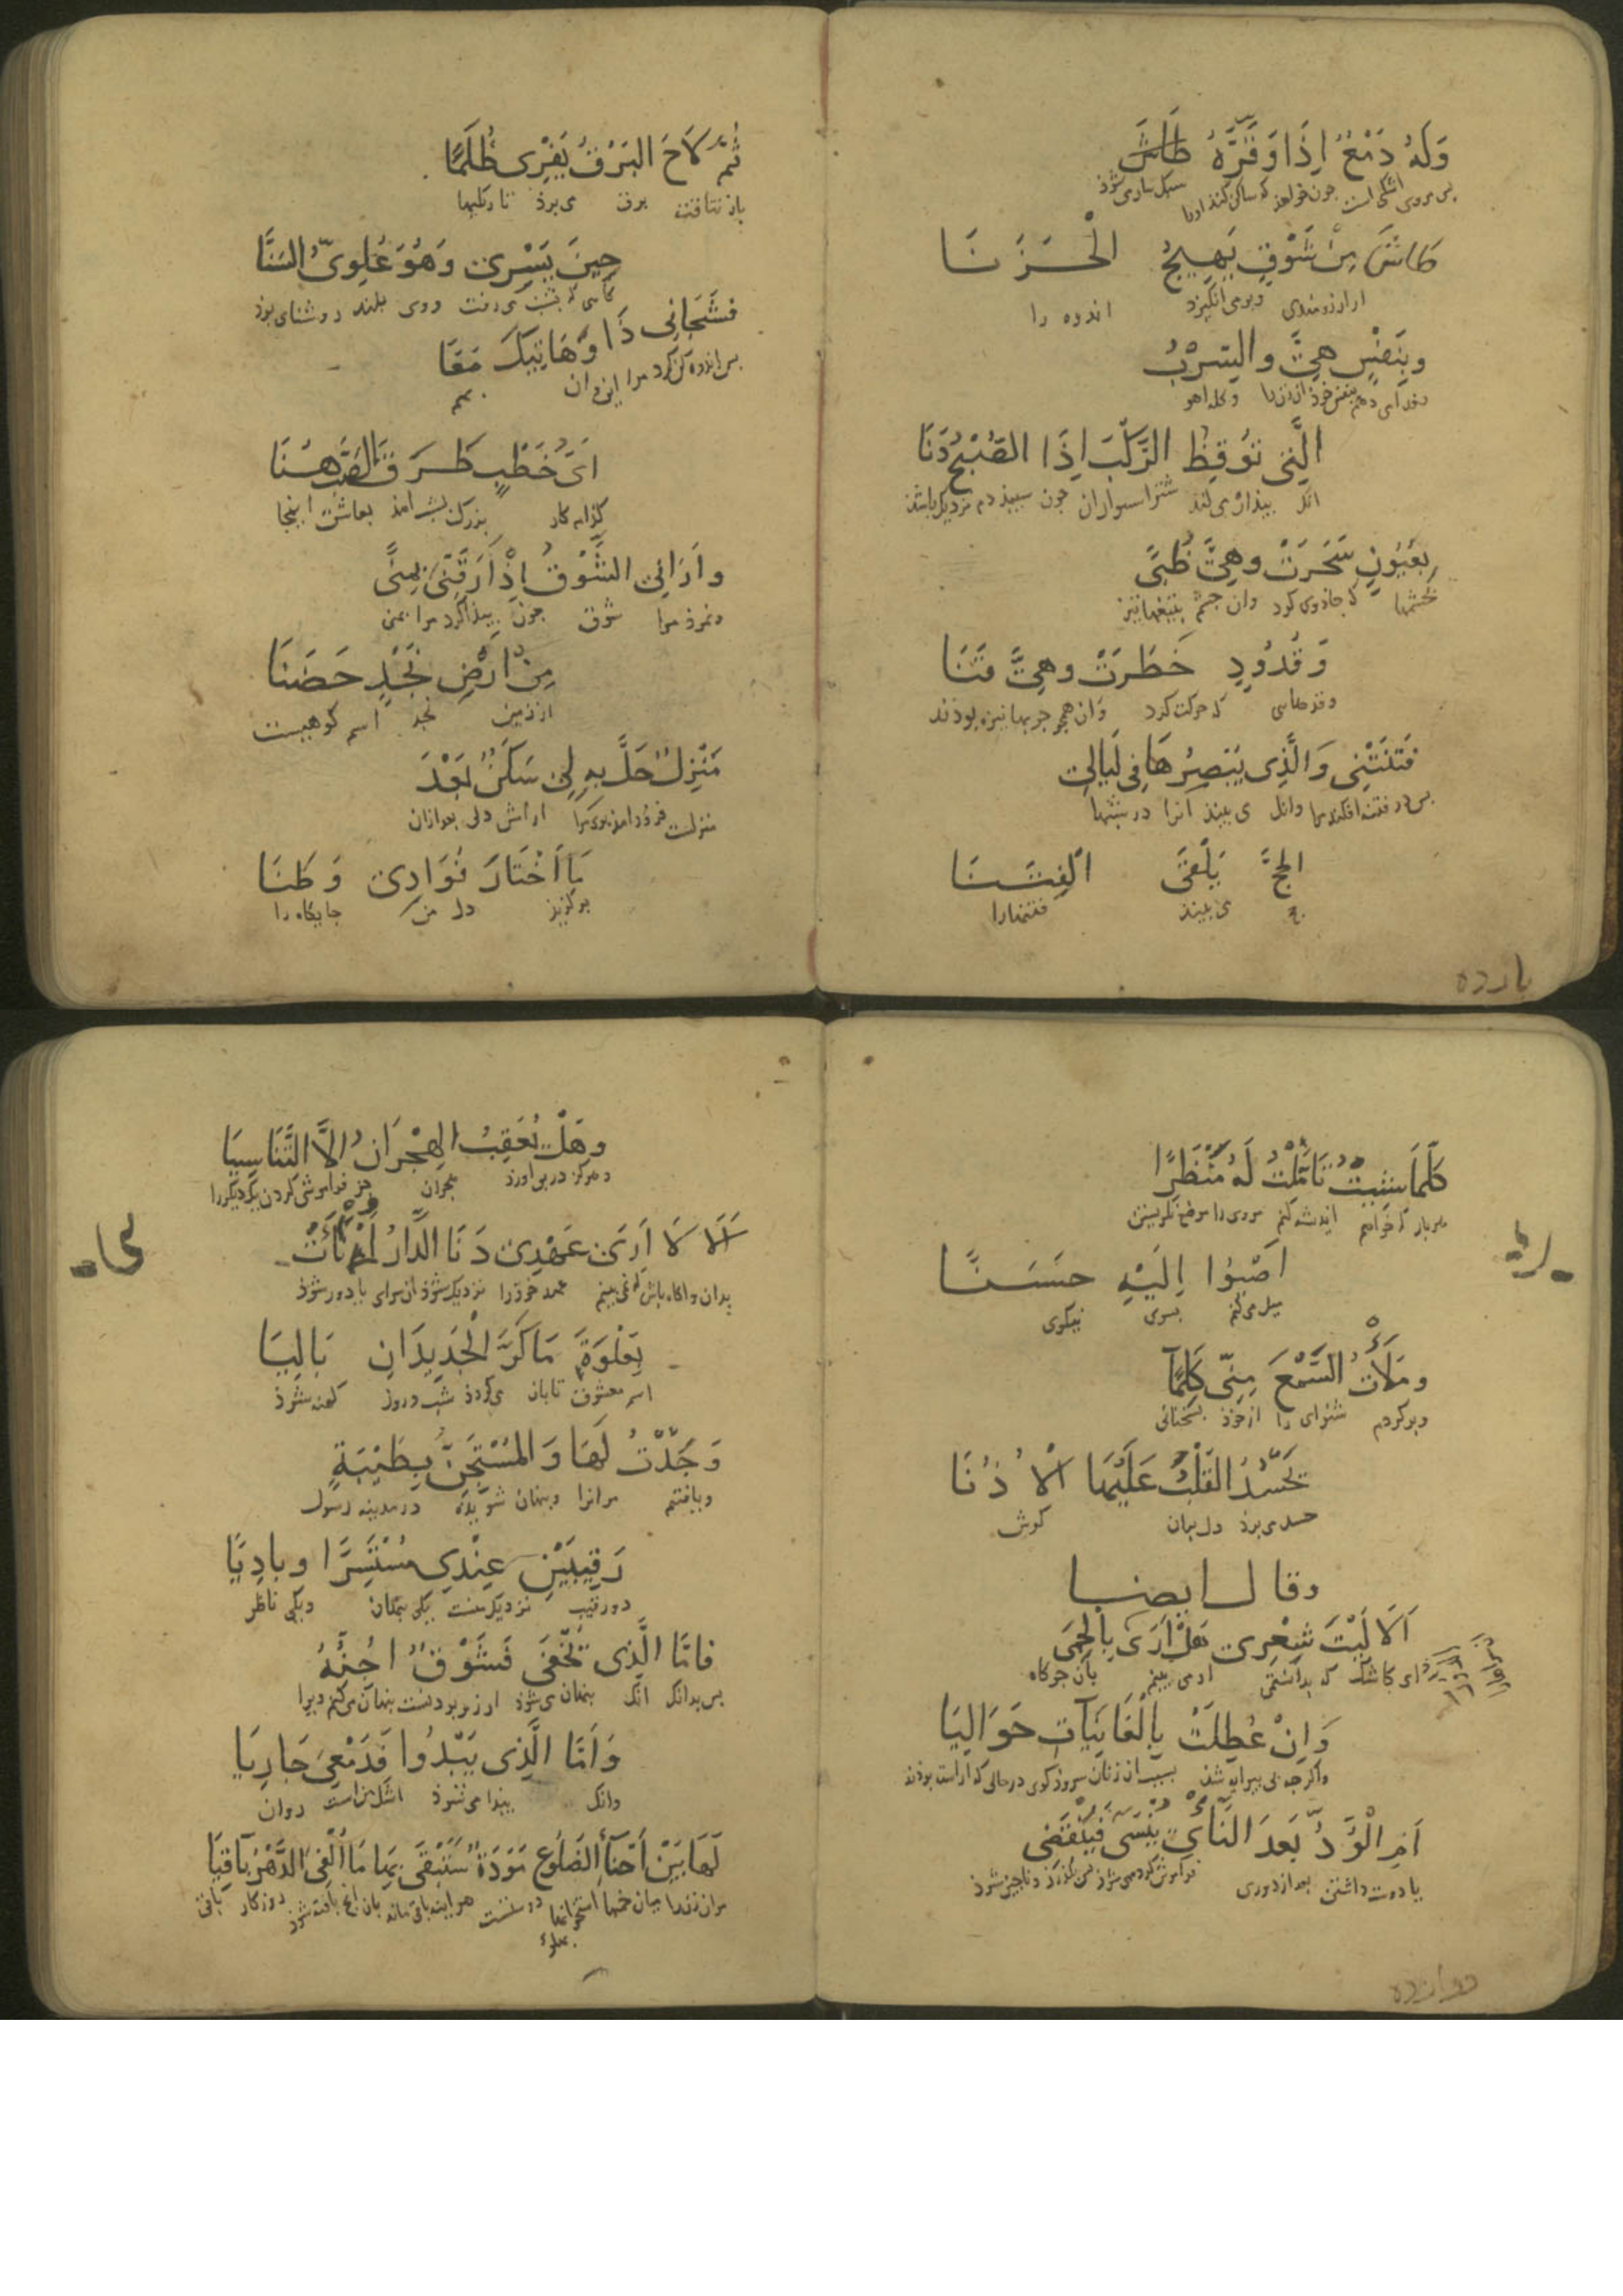 وَلَهُ دَمْعٌ اِذَا وَقَّرَهُ طَاشَ
سبک ساری شوذ
طَاشَ مِنْ شَوْقٍ يَهِيجُ الْحَزَنَا
از ارزومندی وبرمی انگیزد اندوه را
وبِنَفْسِي هِيَّ والسِّرْبُ
بنفس خوذ ان زن را و کله اهو
الَّتِي تُوقِظُ الرَّكْبَ اِذَا الصُّبْحُ دَنَا
انک بیذار می کند شتر سواران جون سبیذ دم نزدیک باشذ
بِعُيُونٍ سَحَرَتْ وهِيَّ ظُبًى
بجشمها که جاذوی کرد وان جشم
وَقُدُودٍ خَطَرَتْ وهِيَّ قَنَا
وقدهاسی که حرکت کرد وان همجو جوبها نیزه بودند
فَتَنَتْنِي وَالَّذِي يَبْصِرُهَا فِي لَيَالِي
بس در فتنه افکند مرا وانک می بیند انرا در شبها
الحَجِّ يَلْقَى الْفِتَنَا
حج می بیند فتنهارا
یازده
ثُمَّ لَاحَ البَرْقُ يَفْرِى ظُلَمًا
باز بتافت برق می برذ تاریکیها
حِينَ يَسْرِى وَهُوَ عُلوِيُّ السَّنَا
بشب می رفت ووی بلند روشنای بوذ
فشَجَانِي ذَا وَهَاتِيكَ مَعًا
بس اندوه کن کرد مرا این وان بهم
اَيُّ خَطْبٍ طَرَقَ الصَّبَّ هُنَا
کذام کار بزرک بشب امذ بعاشق اینجا
واَرَانِي الشَّوْقُ اِذْ اَرَّقَنِي بِمِنًى
ونموذ مرا شوق جون بیذار کرد مرا بمنی
مِنْ اَرْضِ نَجْدٍ حَضَنَا
از زمین نجد اسم کوهیست
مَنْزِلٌ حَلَّ بِهِ لِي سَكَنٌ بَعْدَ
منزلست فروذ امذ بوی مرا ارامش دلی بعد ازان
مَا اَخْتَارَ فُوَادِي وَطَنَا
برکزیذ دل من جایکاه را
كُلَّمَا شِيتُ تَامَّلْتُ لَهُ مَنْظَرًا
هر بار که خواهم اندیشه کنم مروی را موضع نکریستن
اَصْبُوا اِلَيْهِ حَسَنًا
میل می کنم بسوی نیکوی
ومَلَأْتُ السَّمْعَ مِنِّي كَلِمًا
وبر کردم شنوای را از خوذ بسخنانی
تَحَسُّدُ القَلْبُ عَلَيْهَا الْاُذُنَا
حسد می برذ دل بران کوش
وقال ايضا
اَلَا لَيْتَ شِعْرِي هَلْ اَرَى بِالْحِمَى
ای کاشک که بدانستمی ارمی بینم بان جرکاه
وَاِنْ عُطِلَتْ بِالْغَانِيَاتِ حَوَالِيَا
واکرجه بی بیرایه شد بسبب ان زنان سروذ کوی در حالی که اراسته بودند
اَمِ الْوُدُّ بَعْدَ النَّأْيِ يُنْسَى فَيَنْقَضِي
یا دوست داشتن بعد از دوری فراموش کرده می شوذ بس بکذرذ وناجیز شوذ
دوازده
وهَلْ يُعْقِبُ الهِجْرَانُ اِلَّا التَّنَاسِيَا
وهرکز در بی اورذ هجران جز فراموشی کردن یکدیکر را
اَلَا لَا اَرَى عَهْدِي دَنَا الدَّارُ اَمْ نَأَتْ
بدان واکاه باش که نمی بینم عهد خوذرا نزدیک شوذ ان سرای یا دور شوذ
بِعَلْوَةَ مَا كَرَّ الْجَدِيدَانِ بَالِيَا
اسم معشوق تابان می کردد شب وروز کهنه شوذ
وَجَدْتُ لَهَا وَالمُسْتَجَنُّ بِطَيْبَةٍ
وبیافتم مرانرا وبنهان شویذه در مدینه رسول
رَقِيبَيْنِ عِنْدِي مُسْتَسِرًّا وبادِيًا
دو رقیب نزدیک منست یکی بنهان ویکی ظاهر
فامَّا الَّذِي تُخْفَى فَشَوْقٌ اُجِنُّهُ
بس بدانک انک بنهان می شوذ ارزومندیست بنهان می کنم ویرا
وَاَمَّا الَّذِي يَبْدُوا فَدَمْعِيَ جَارِيَا
وانک بیذا می شوذ اشک منست روان
لَهَا بَيْنَ اَحْنَاءِ الضُلُوعِ مَوَدَّةٌ سَتَبْقَى بِهَا مَا اُلْفِيَ الدَّهْرُ بَاقِيَا
مران زن را میان خمها استخوانها دوستیست هراینه باقی ماند بان روزکار باقی